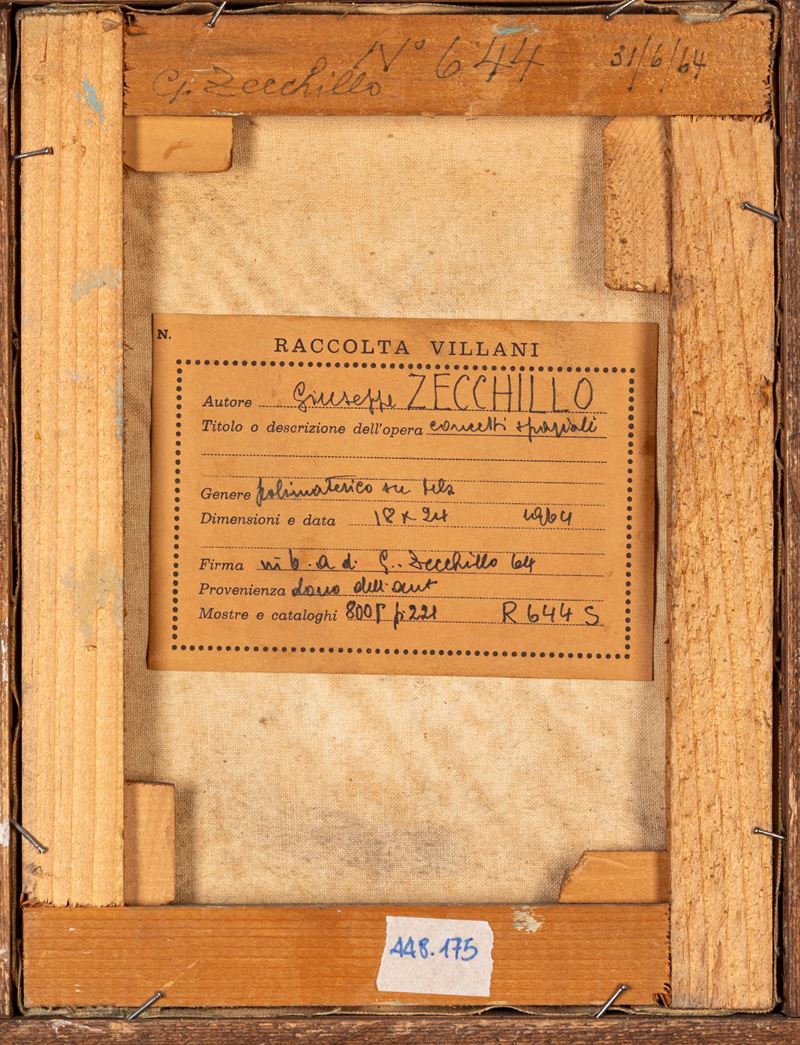 G. Zecchillo N° 644 31/6/64
N.
RACCOLTA VILLANI
Autore Giuseppe ZECCHILLO
Titolo o descrizione dell'opera concetti spaziali
Genere polimaterico su tela
Dimensioni e data 18 x 24 1964
Firma in b. a d. G.. Zecchillo 64
Provenienza dono dell'aut
Mostre e cataloghi p 221 R 644 S
448.175